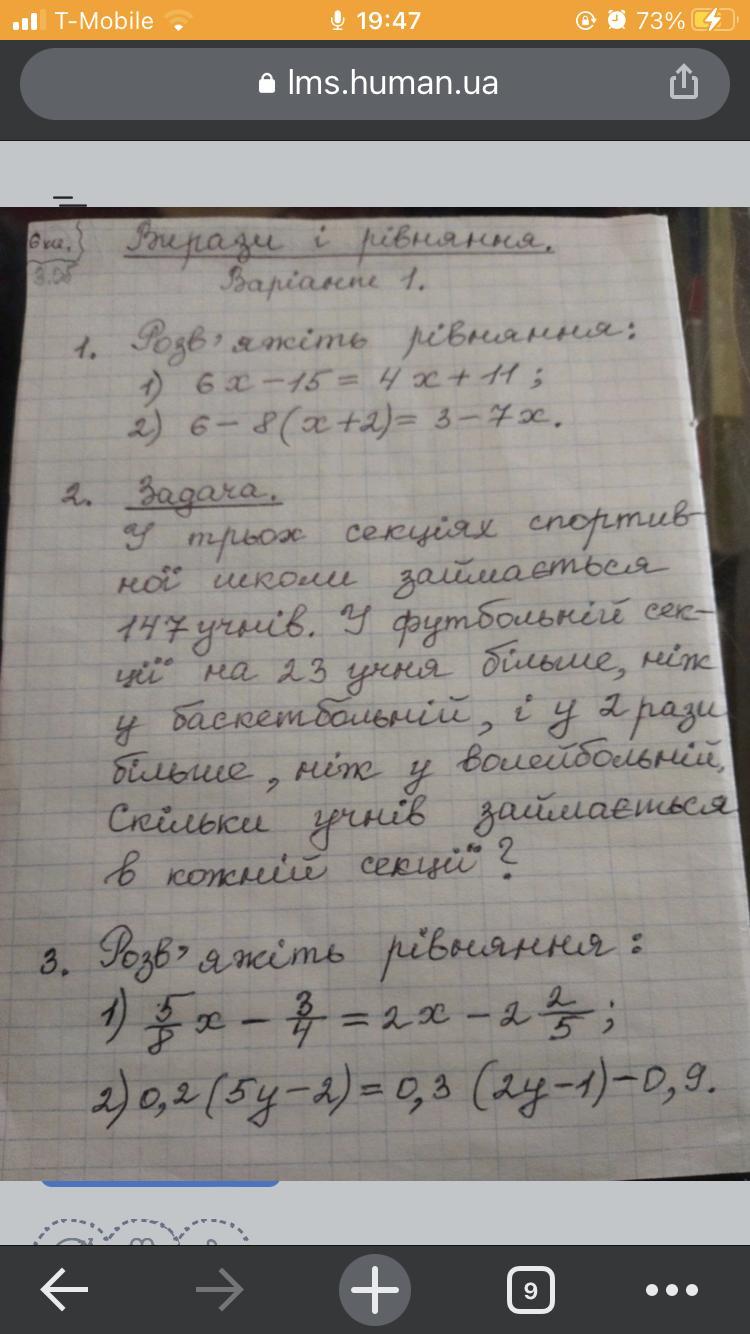 T-Mobile 19:47 73%
lms.human.ua
6 кл. Вирази і рівняння.
3.05 Варіант 1.
1. Розв'яжіть рівняння:
1) 6x-15= 4x+11;
2) 6-8(x+2)= 3-7x.
2. Задача.
У трьох секціях спортив-
ної школи займається
147 учнів. У футбольній сек-
ції на 23 учня більше, ніж
у баскетбольній, і у 2 рази
більше, ніж у волейбольній.
Скільки учнів займається
в кожній секції?
3. Розв'яжіть рівняння:
1) 5/8 x - 3/4 = 2x - 2 2/5;
2) 0,2(5y-2)= 0,3 (2y-1)-0,9.
9